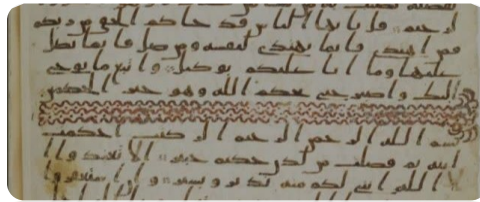 لرحيم قل يايها الناس قد جاكم الحق من ربكم
فمن اهتدى فانما يهتدى لنفسه ومن ضل فانما يضل
عليها وما انا عليكم بوكيل واتبع ما يوحى
اليك واصبر حتى يحكم الله وهو خير الحكمين
بسم الله الرحمن الرحيم الر كتب احكمت
ايته ثم فصلت من لدن حكيم خبير الا تعبدوا ا
لا الله اننى لكم منه نذير وبشير وان استغفروا